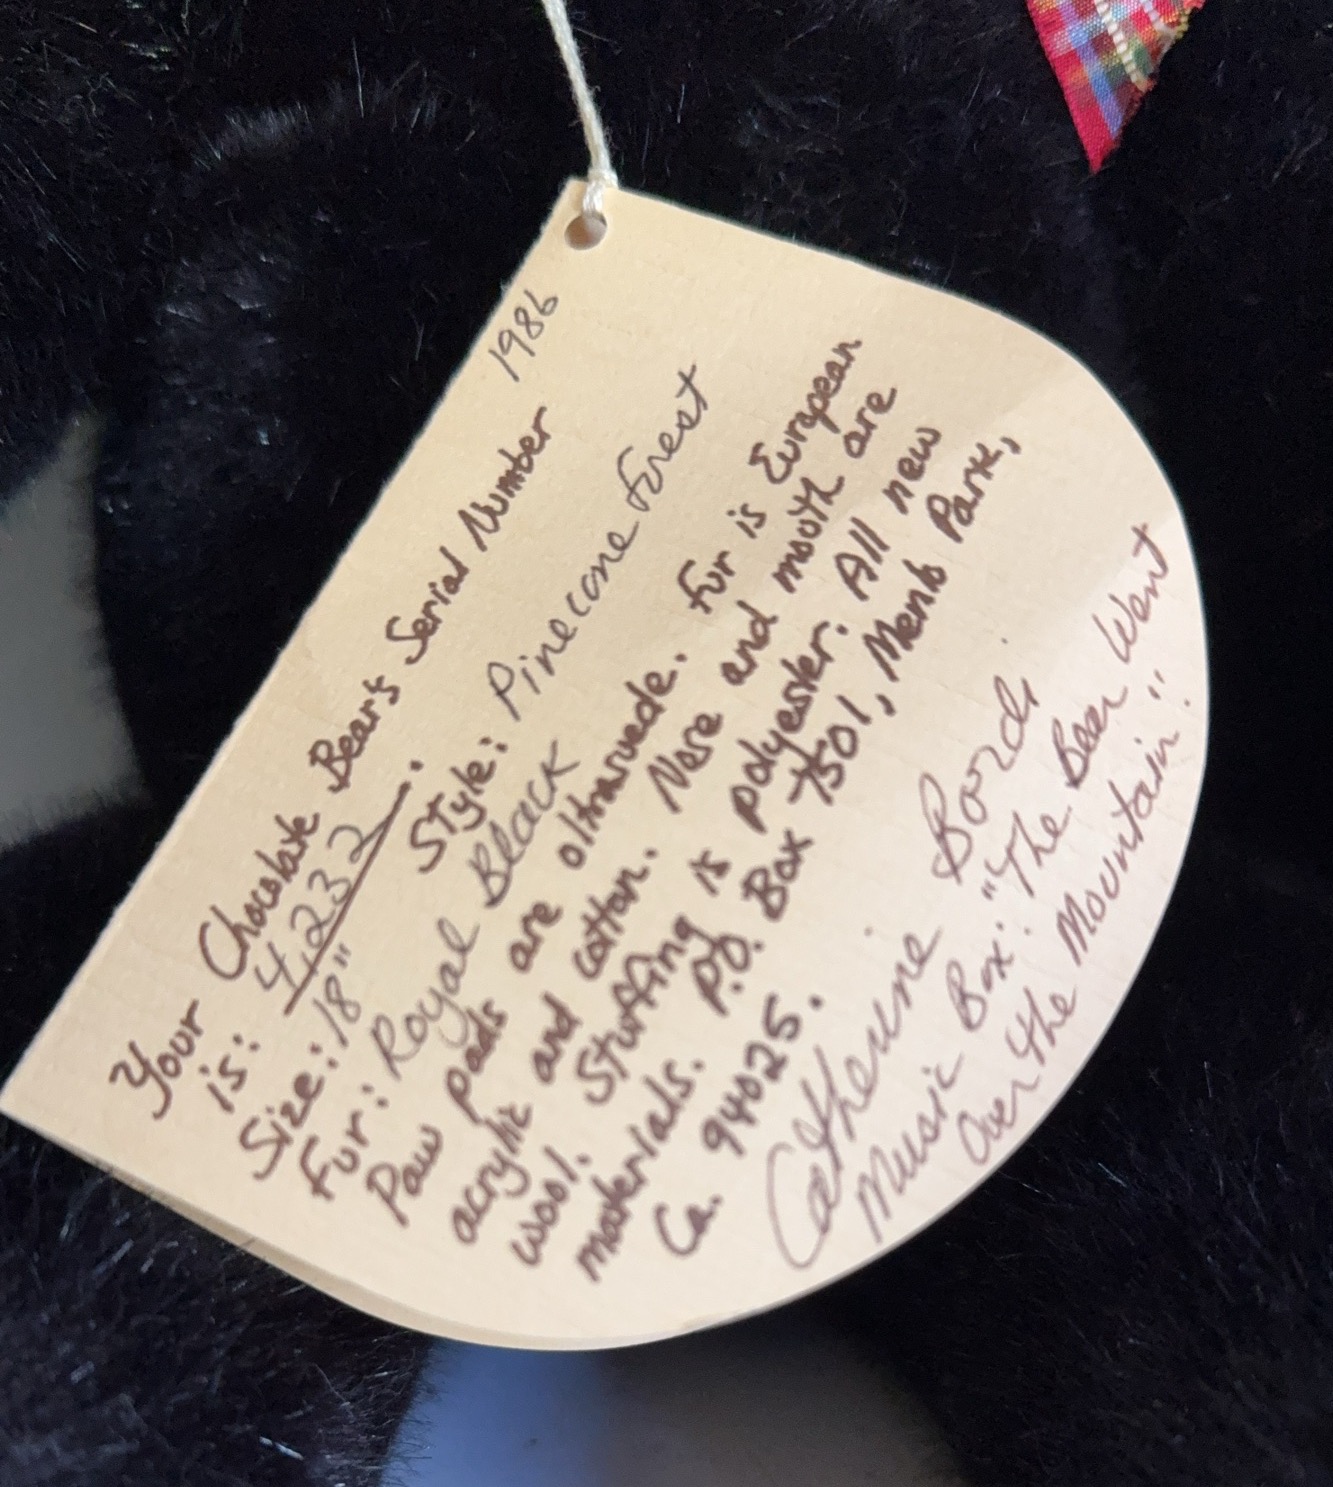 1986
Your Chocolate Bear's Serial Number
is: 4,232.
Size: 18" Style: Pinecone Forest
Fur: Royal Black
Paw pads are ultrasuede. Fur is European
acrylic and cotton. Nose and mouth are
wool. Stuffing is polyester. All new
materials. P.O. Box 7501, Menlo Park,
Ca. 94025.
Catherine Bordi
Music Box: "The Bear Went
Over the Mountain".